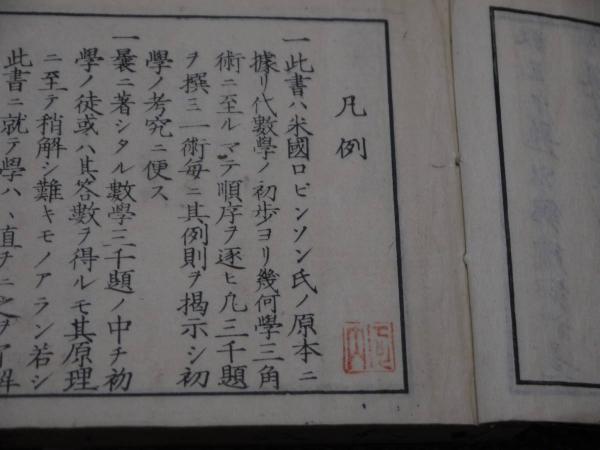 凡例
一此書ハ米國ロビンソン氏ノ原本ニ
據リ代數學ノ初歩ヨリ幾何學三角
術ニ至ルマテ順序ヲ逐ヒ凡三千題
ヲ撰ミ一術毎ニ其例則ヲ揭示シ初
學ノ考究ニ便ス
一曩ニ著シタル數學三千題ノ中チ初
學ノ徒或ハ其答數ヲ得ルモ其原理
ニ至テ稍解シ難キモノアラン若シ
此書ニ就テ學ハヽ直チニ之ヲ了解